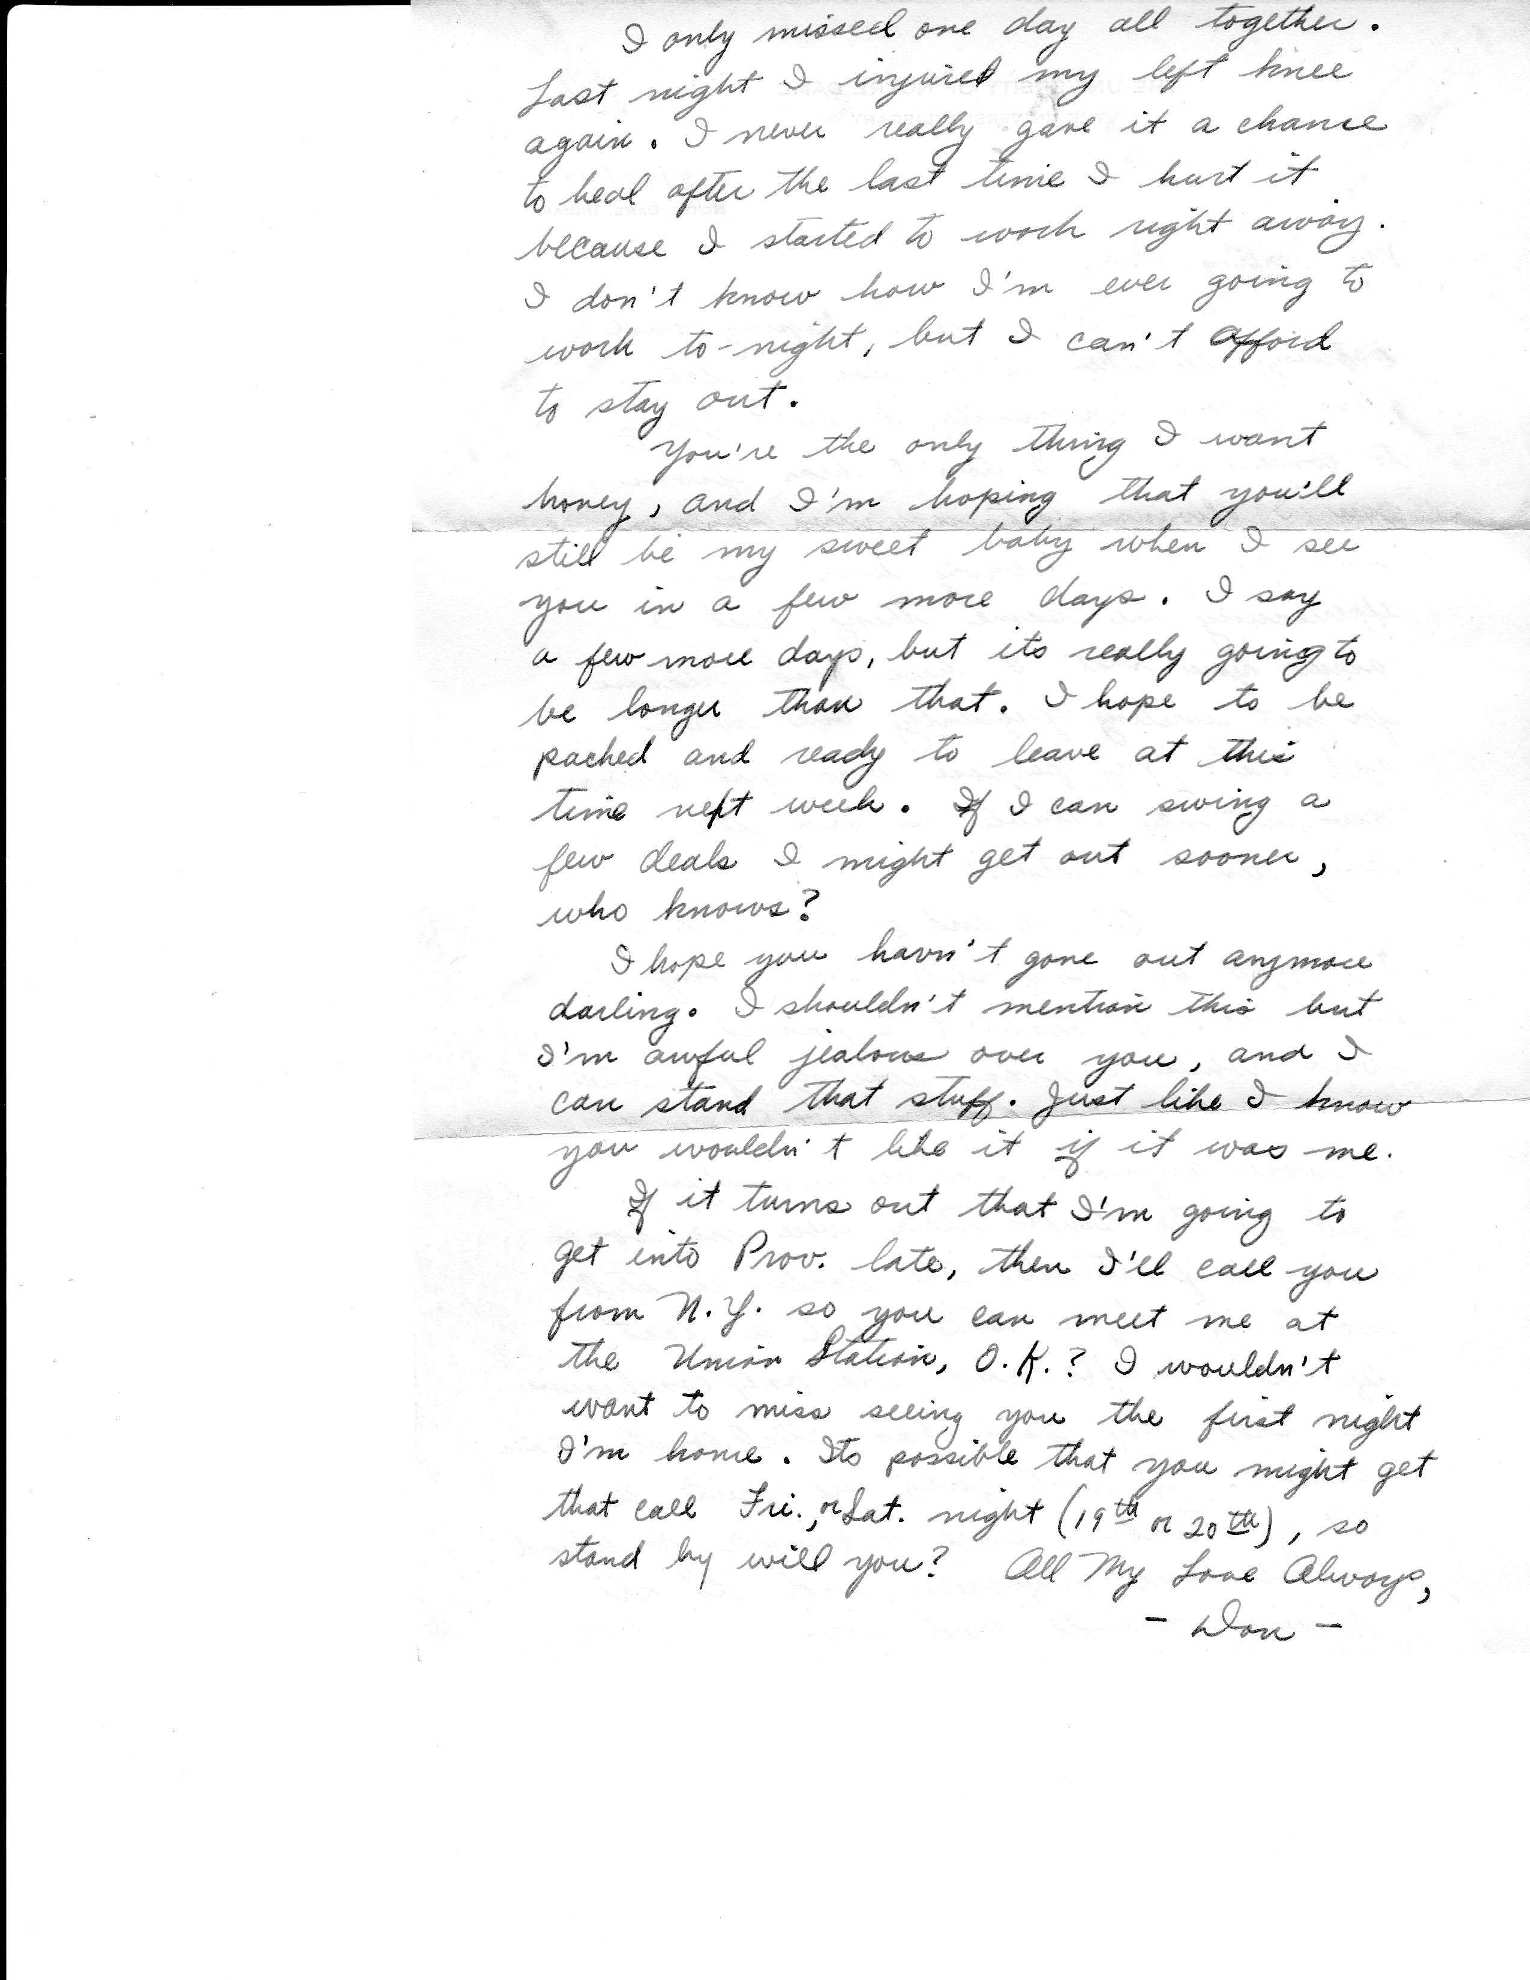 I only missed one day all together.
Last night I injured my left knee
again. I never really gave it a chance
to heal after the last time I hurt it
because I started to work right away.
I don't know how I'm ever going to
work to-night, but I can't afford
to stay out.
You're the only thing I want
honey, and I'm hoping that you'll
still be my sweet baby when I see
you in a few more days. I say
a few more days, but its really going to
be longer than that. I hope to be
packed and ready to leave at this
time next week. If I can swing a
few deals I might get out sooner,
who knows?
I hope you havn't gone out anymore
darling. I shouldn't mention this but
I'm awful jealous over you, and I
can stand that stuff. Just like I know
you wouldn't like it if it was me.
If it turns out that I'm going to
get into Prov. late, then I'll call you
from N.Y. so you can meet me at
the Union Station, O.K.? I wouldn't
want to miss seeing you the first night
I'm home. Its possible that you might get
that call Fri., or Sat. night (19th or 20th), so
stand by will you? All My Love Always,
- Don -